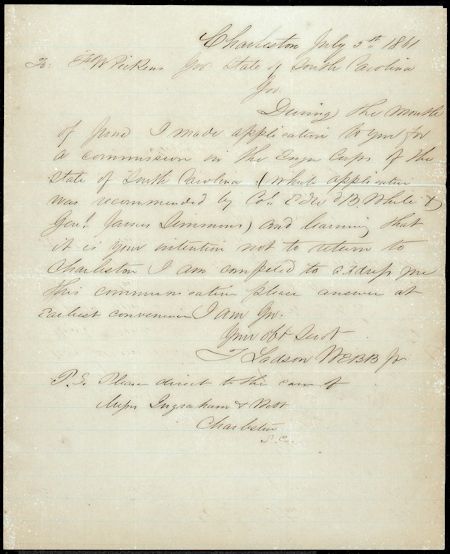 Charleston July 5th 1861
To: F W Pickens Gov State of South Carolina
Gov
During the month
of June I made application to you for
a commission in the Engn Corps of the
State of South Carolina (whole application
was recommended by Col. Ed & White &
Genl James Simmons) and learning that
it is your intention not to return to
Charleston I am compeled to address me
this communication please answer at
Earliest convenience I am Gov.
Your obt Servt
T Ladson WEBB Jr
P.S. Please direct to the care of
Messr Ingraham & Webb
Charleston
S.C.